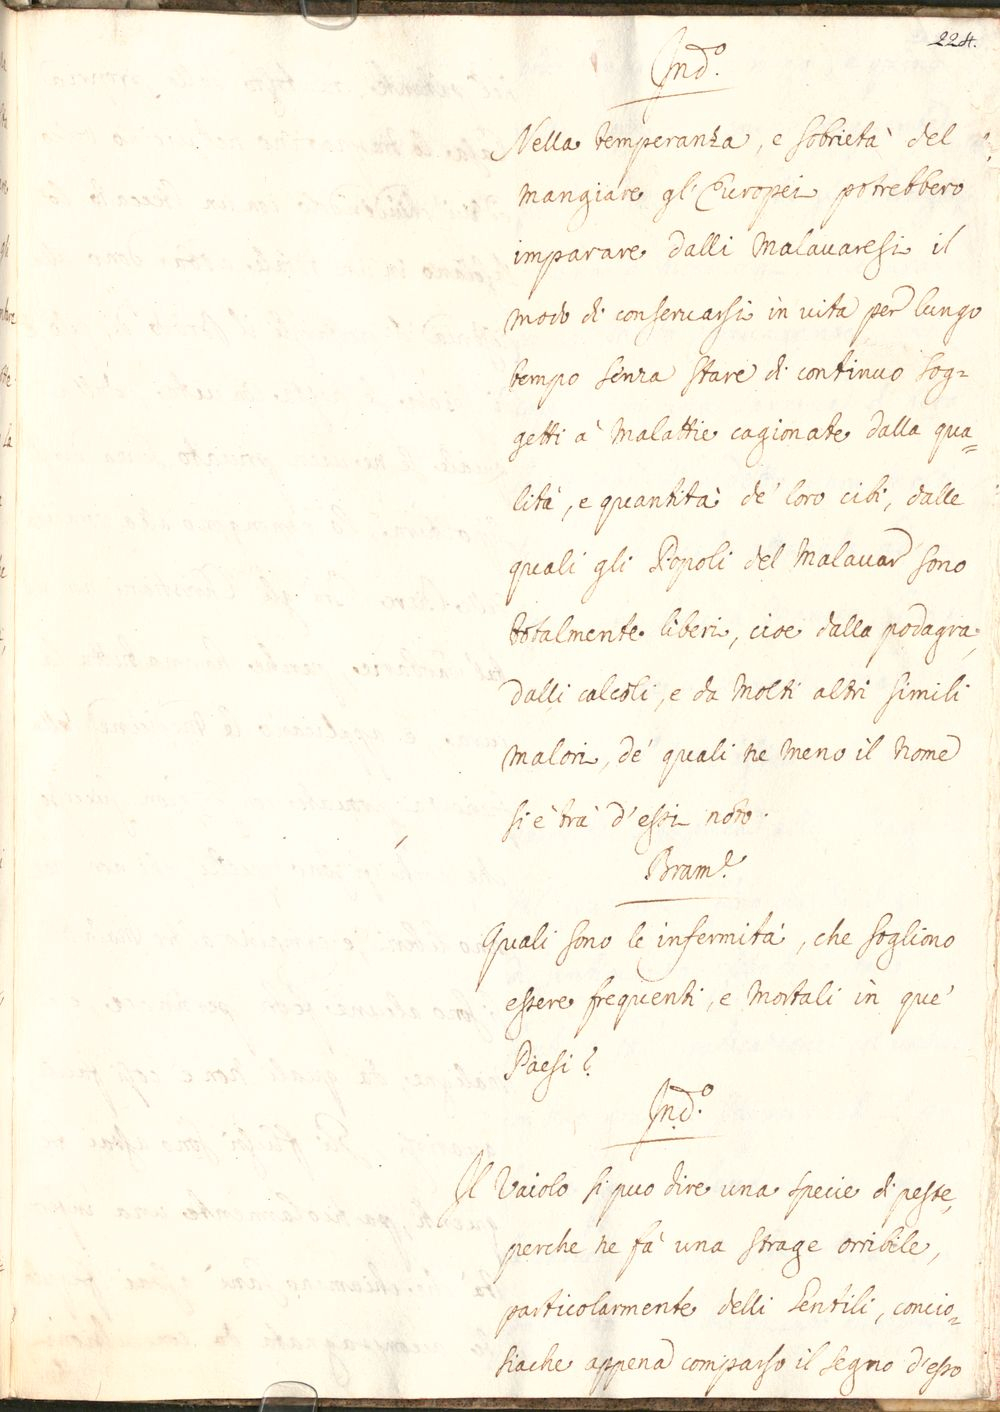 224.
Ind.o
Nella temperanza, e sobrietà del
mangiare gl'Europei potrebbero
imparare dalli Malavaresi il
modo di conservarsi in vita per lungo
tempo senza stare di continuo sog=
getti à Malattie cagionate dalla qua=
lità, e quantità de' loro cibi, dalle
quali gli Popoli del Malavar sono
totalmente liberi, cioe dalla podagra,
dalli calcoli, e da Molti altri simili
malori, de' quali ne meno il Nome
si è trà d'essi noto.
Bram.e
Quali sono le infermità, che sogliono
essere frequenti, e Mortali in que'
Paesi?
Ind.o
Il Vaiolo si puo dire una specie di peste,
perche ne fà una strage orribile,
particolarmente delli Gentili, concio=
siache appena comparso il segno d'esso